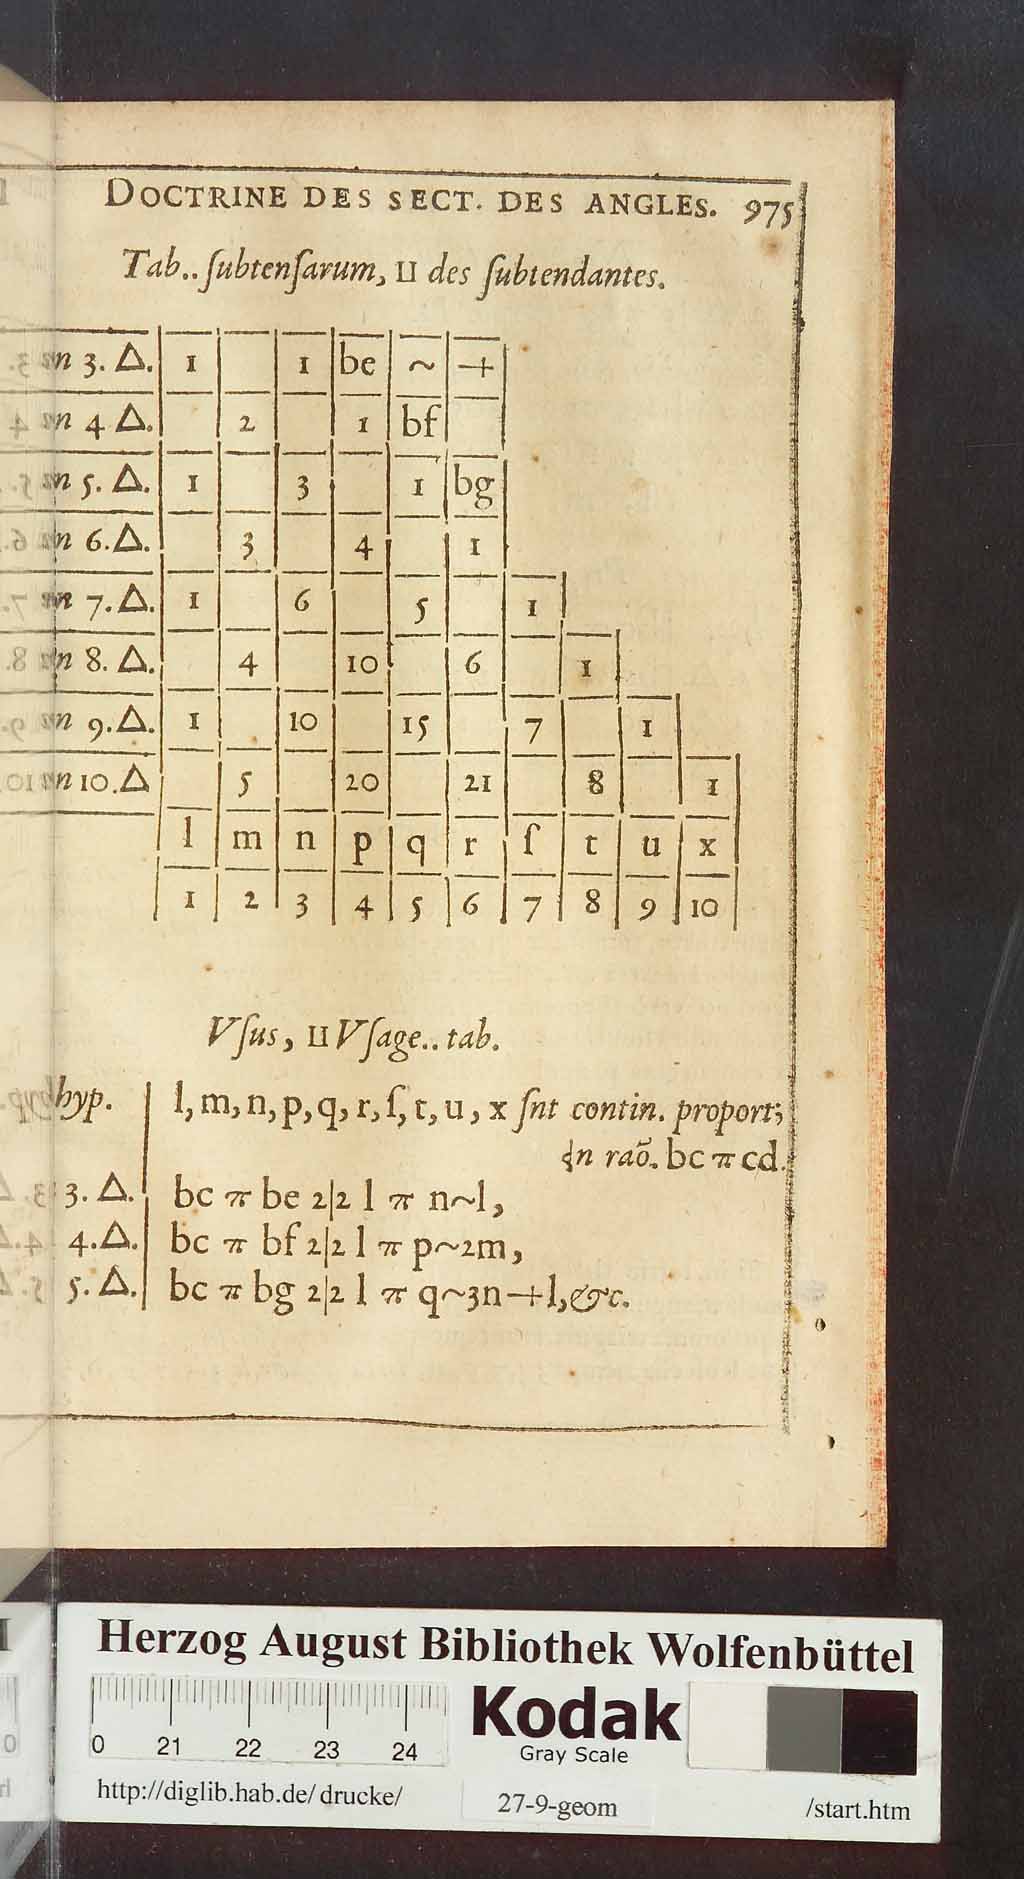 DOCTRINE DES SECT. DES ANGLES. 975
Tab.. ſubtenſarum, ⊔ des ſubtendantes.
in 3. △. 1 1 be ~ +
in 4 △. 2 1 bf
in 5. △. 1 3 1 bg
in 6. △. 3 4 1
in 7. △. 1 6 5 1
in 8. △. 4 10 6 1
in 9. △. 1 10 15 7 1
in 10. △ 5 20 21 8 1
l m n p q r ſ t u x
1 2 3 4 5 6 7 8 9 10
Vſus, ⊔ Vſage.. tab.
hyp. | l, m, n, p, q, r, ſ, t, u, x ſnt contin. proport;
in raõ. bc π cd.
3. △. | bc π be 2|2 l π n~l,
4. △. | bc π bf 2|2 l π p~2m,
5. △. | bc π bg 2|2 l π q~3n+l, &c.
Herzog August Bibliothek Wolfenbüttel
0 21 22 23 24
Kodak
Gray Scale
http://diglib.hab.de/drucke/ 27-9-geom /start.htm